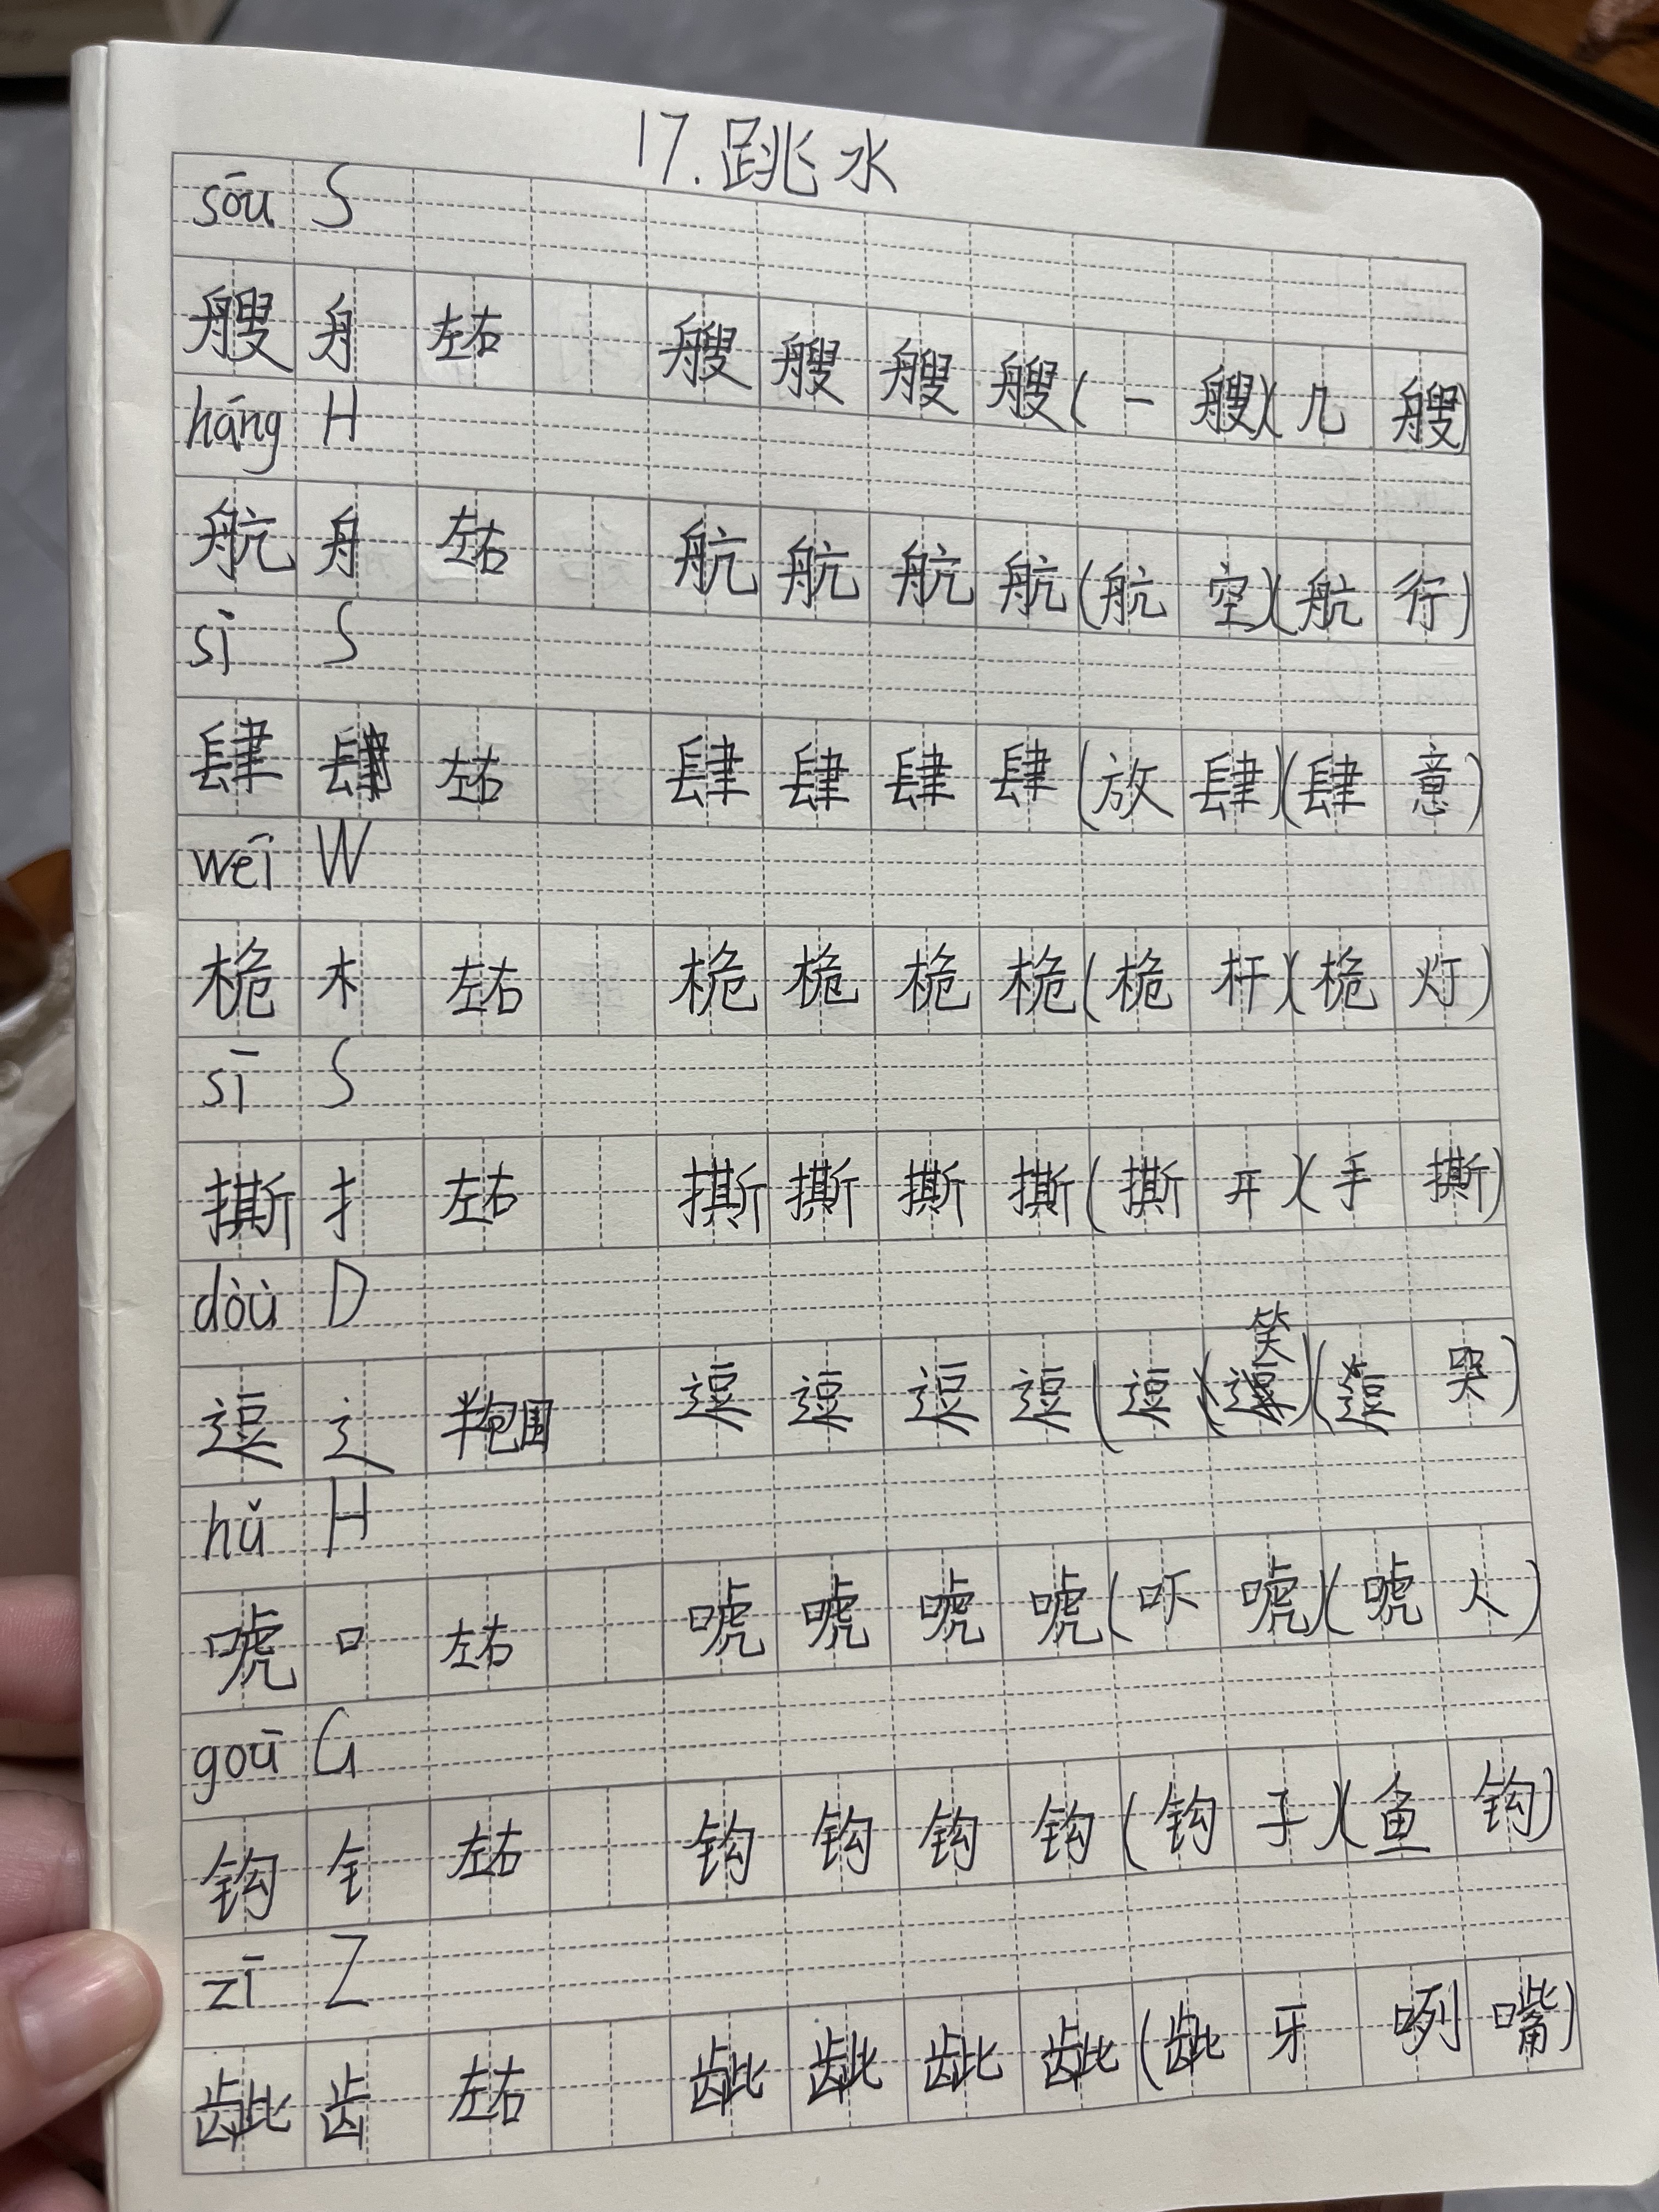 17.跳水
sōu S
艘 舟 左右 艘 艘 艘 艘 (一 艘)(几 艘)
háng H
航 舟 左右 航 航 航 航 (航 空)(航 行)
sì S
肆 左右 肆 肆 肆 肆 (放 肆)(肆 意)
wéi W
桅 木 左右 桅 桅 桅 桅 (桅 杆)(桅 灯)
sī S
撕 扌 左右 撕 撕 撕 撕 (撕 开)(手 撕)
dòu D
逗 辶 半包围 逗 逗 逗 逗 (逗 笑)(逗 哭)
hǔ H
唬 口 左右 唬 唬 唬 唬 (吓 唬)(唬 人)
goū G
钩 钅 左右 钩 钩 钩 钩 (钩 子)(鱼 钩)
zī Z
龇 齿 左右 龇 龇 龇 龇 (龇 牙 咧 嘴)